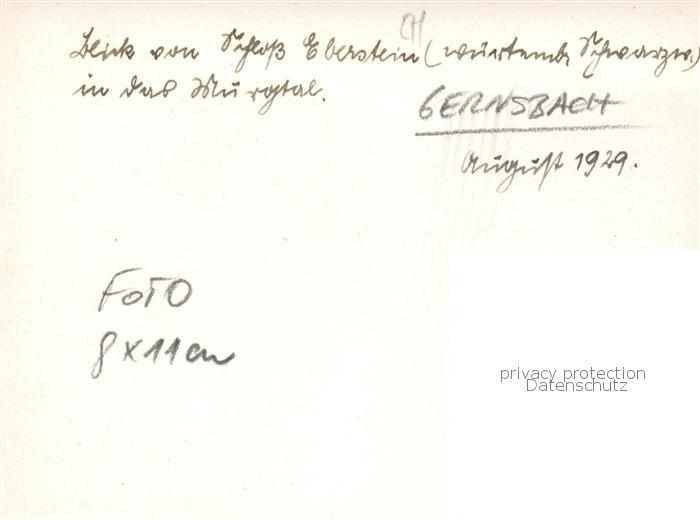 CH
Blick von Schloß Eberstein (würtemb. Schwarzw.)
in das Murgtal.
GERNSBACH
August 1929.
FOTO
8 x 11 cm
privacy protection
Datenschutz